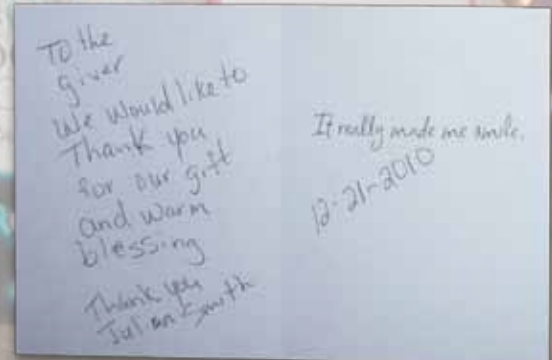 To the
giver
We would like to
Thank you
for our gift
and warm
blessing
Thank you
Julian Smith
It really made me smile.
12-21-2010